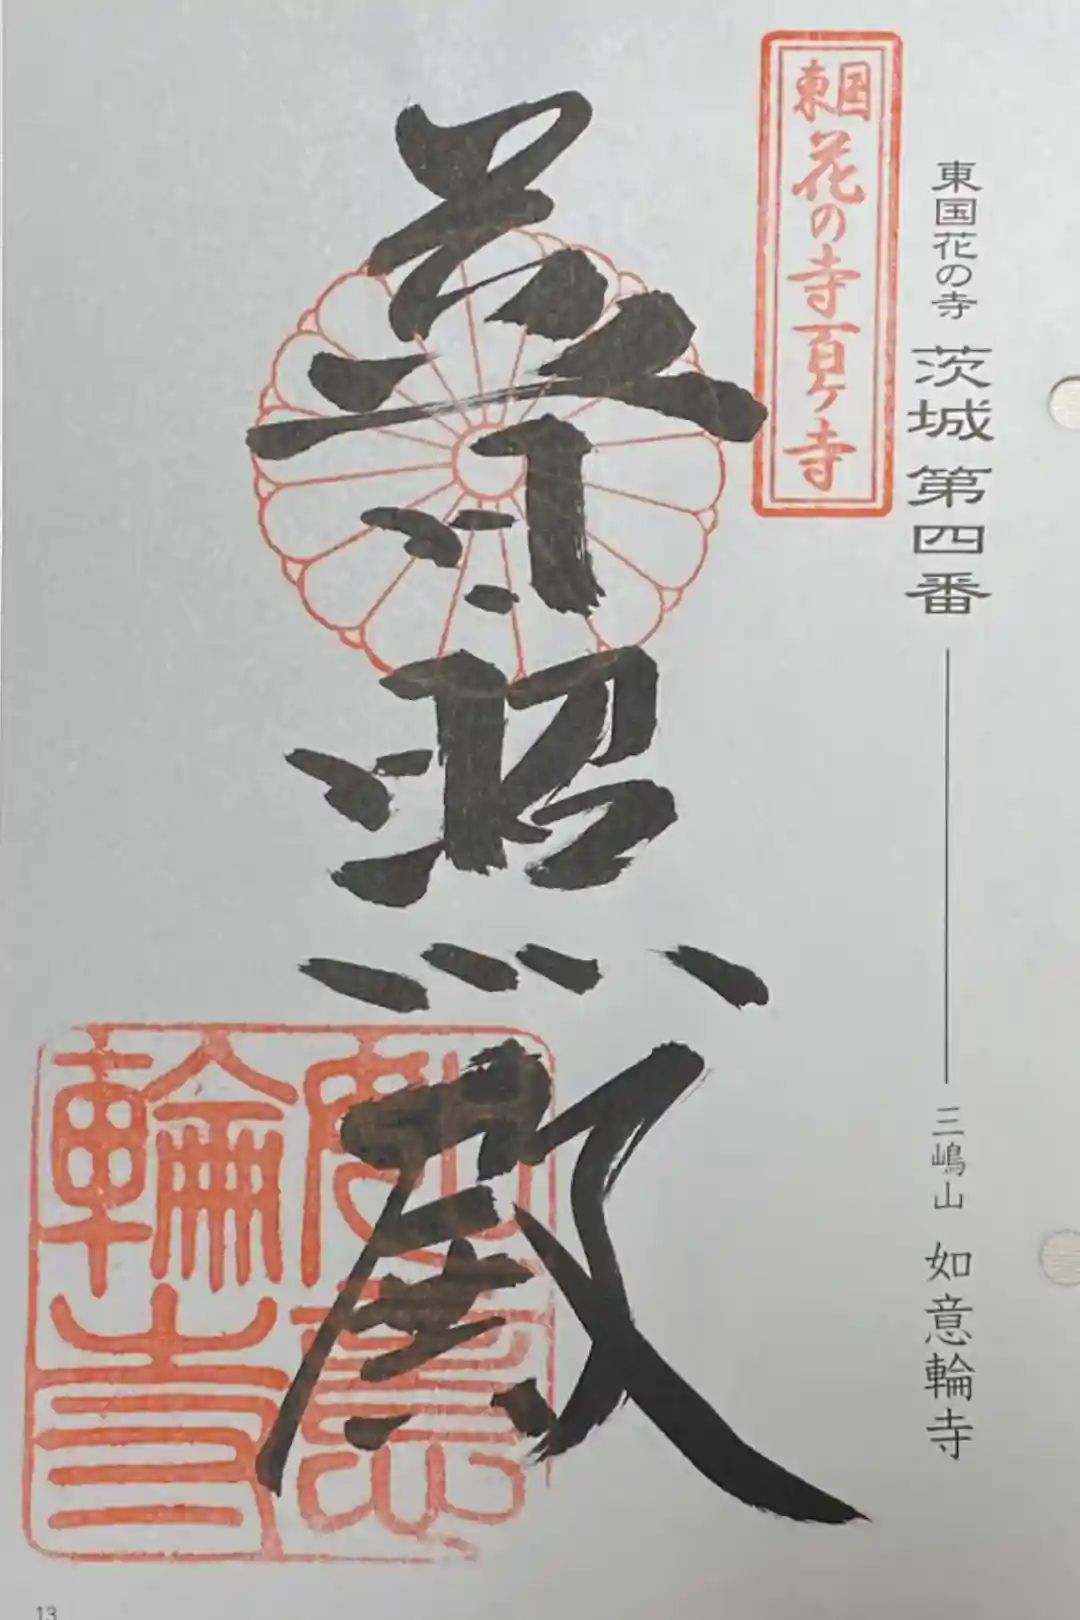 東国花の寺 茨城 第四番 三嶋山 如意輪寺
東国花の寺百ヶ寺
普照殿
如意
輪寺
13